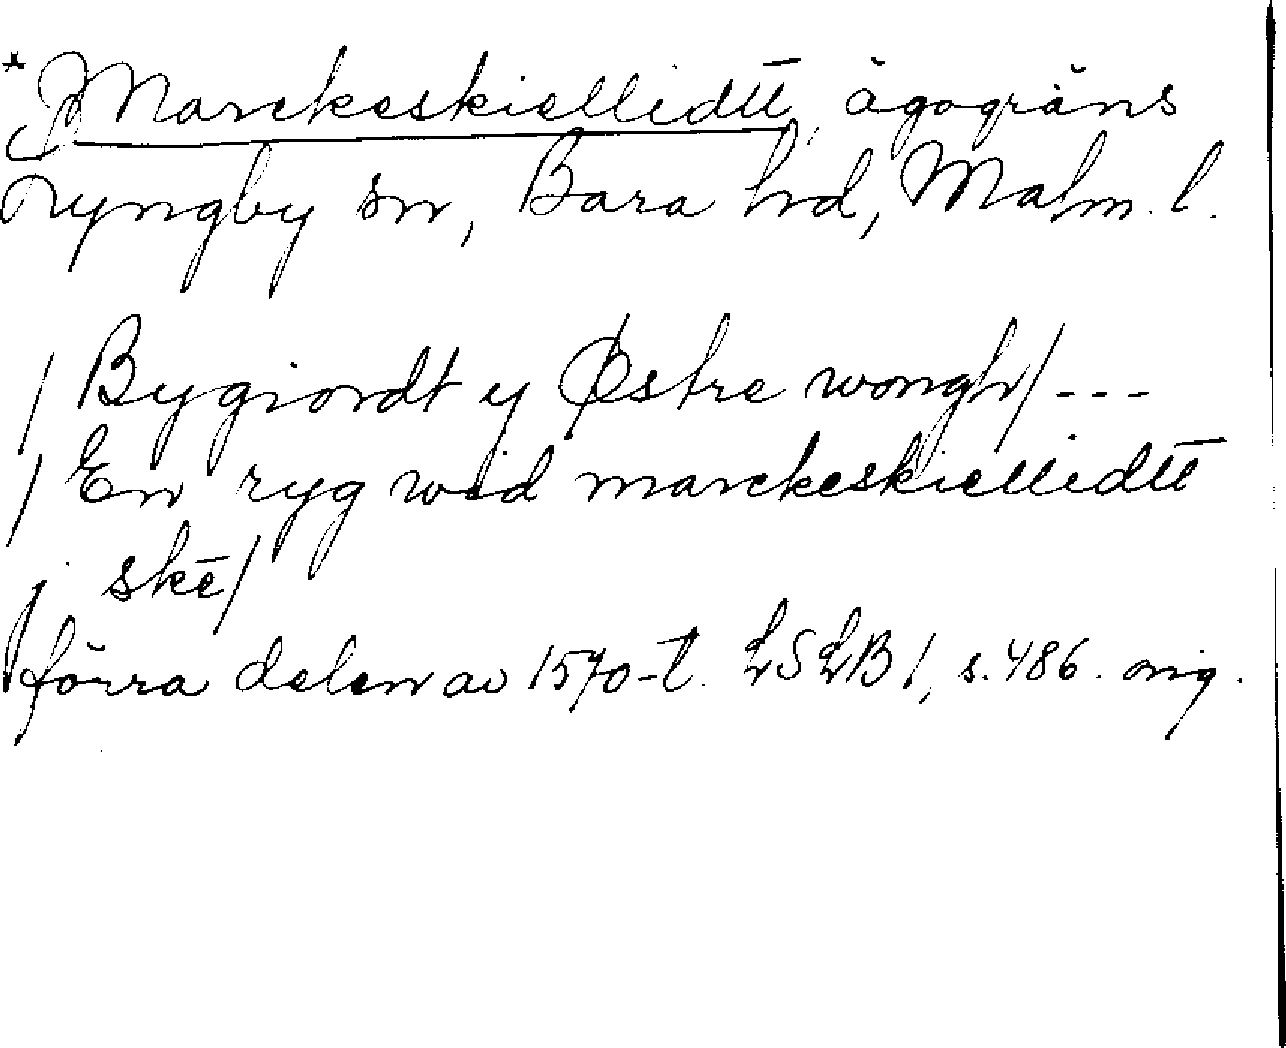 * Marckeskiellidtt, ägogräns
Nyngby sn, Bara hd, Malm. l.
/ Bygiordt y Østre wongh / - - -
/ En ryg wed marckeskiellidtt
j skē /
förra delen av 1570-t. LSLB 1, s. 486. orig.